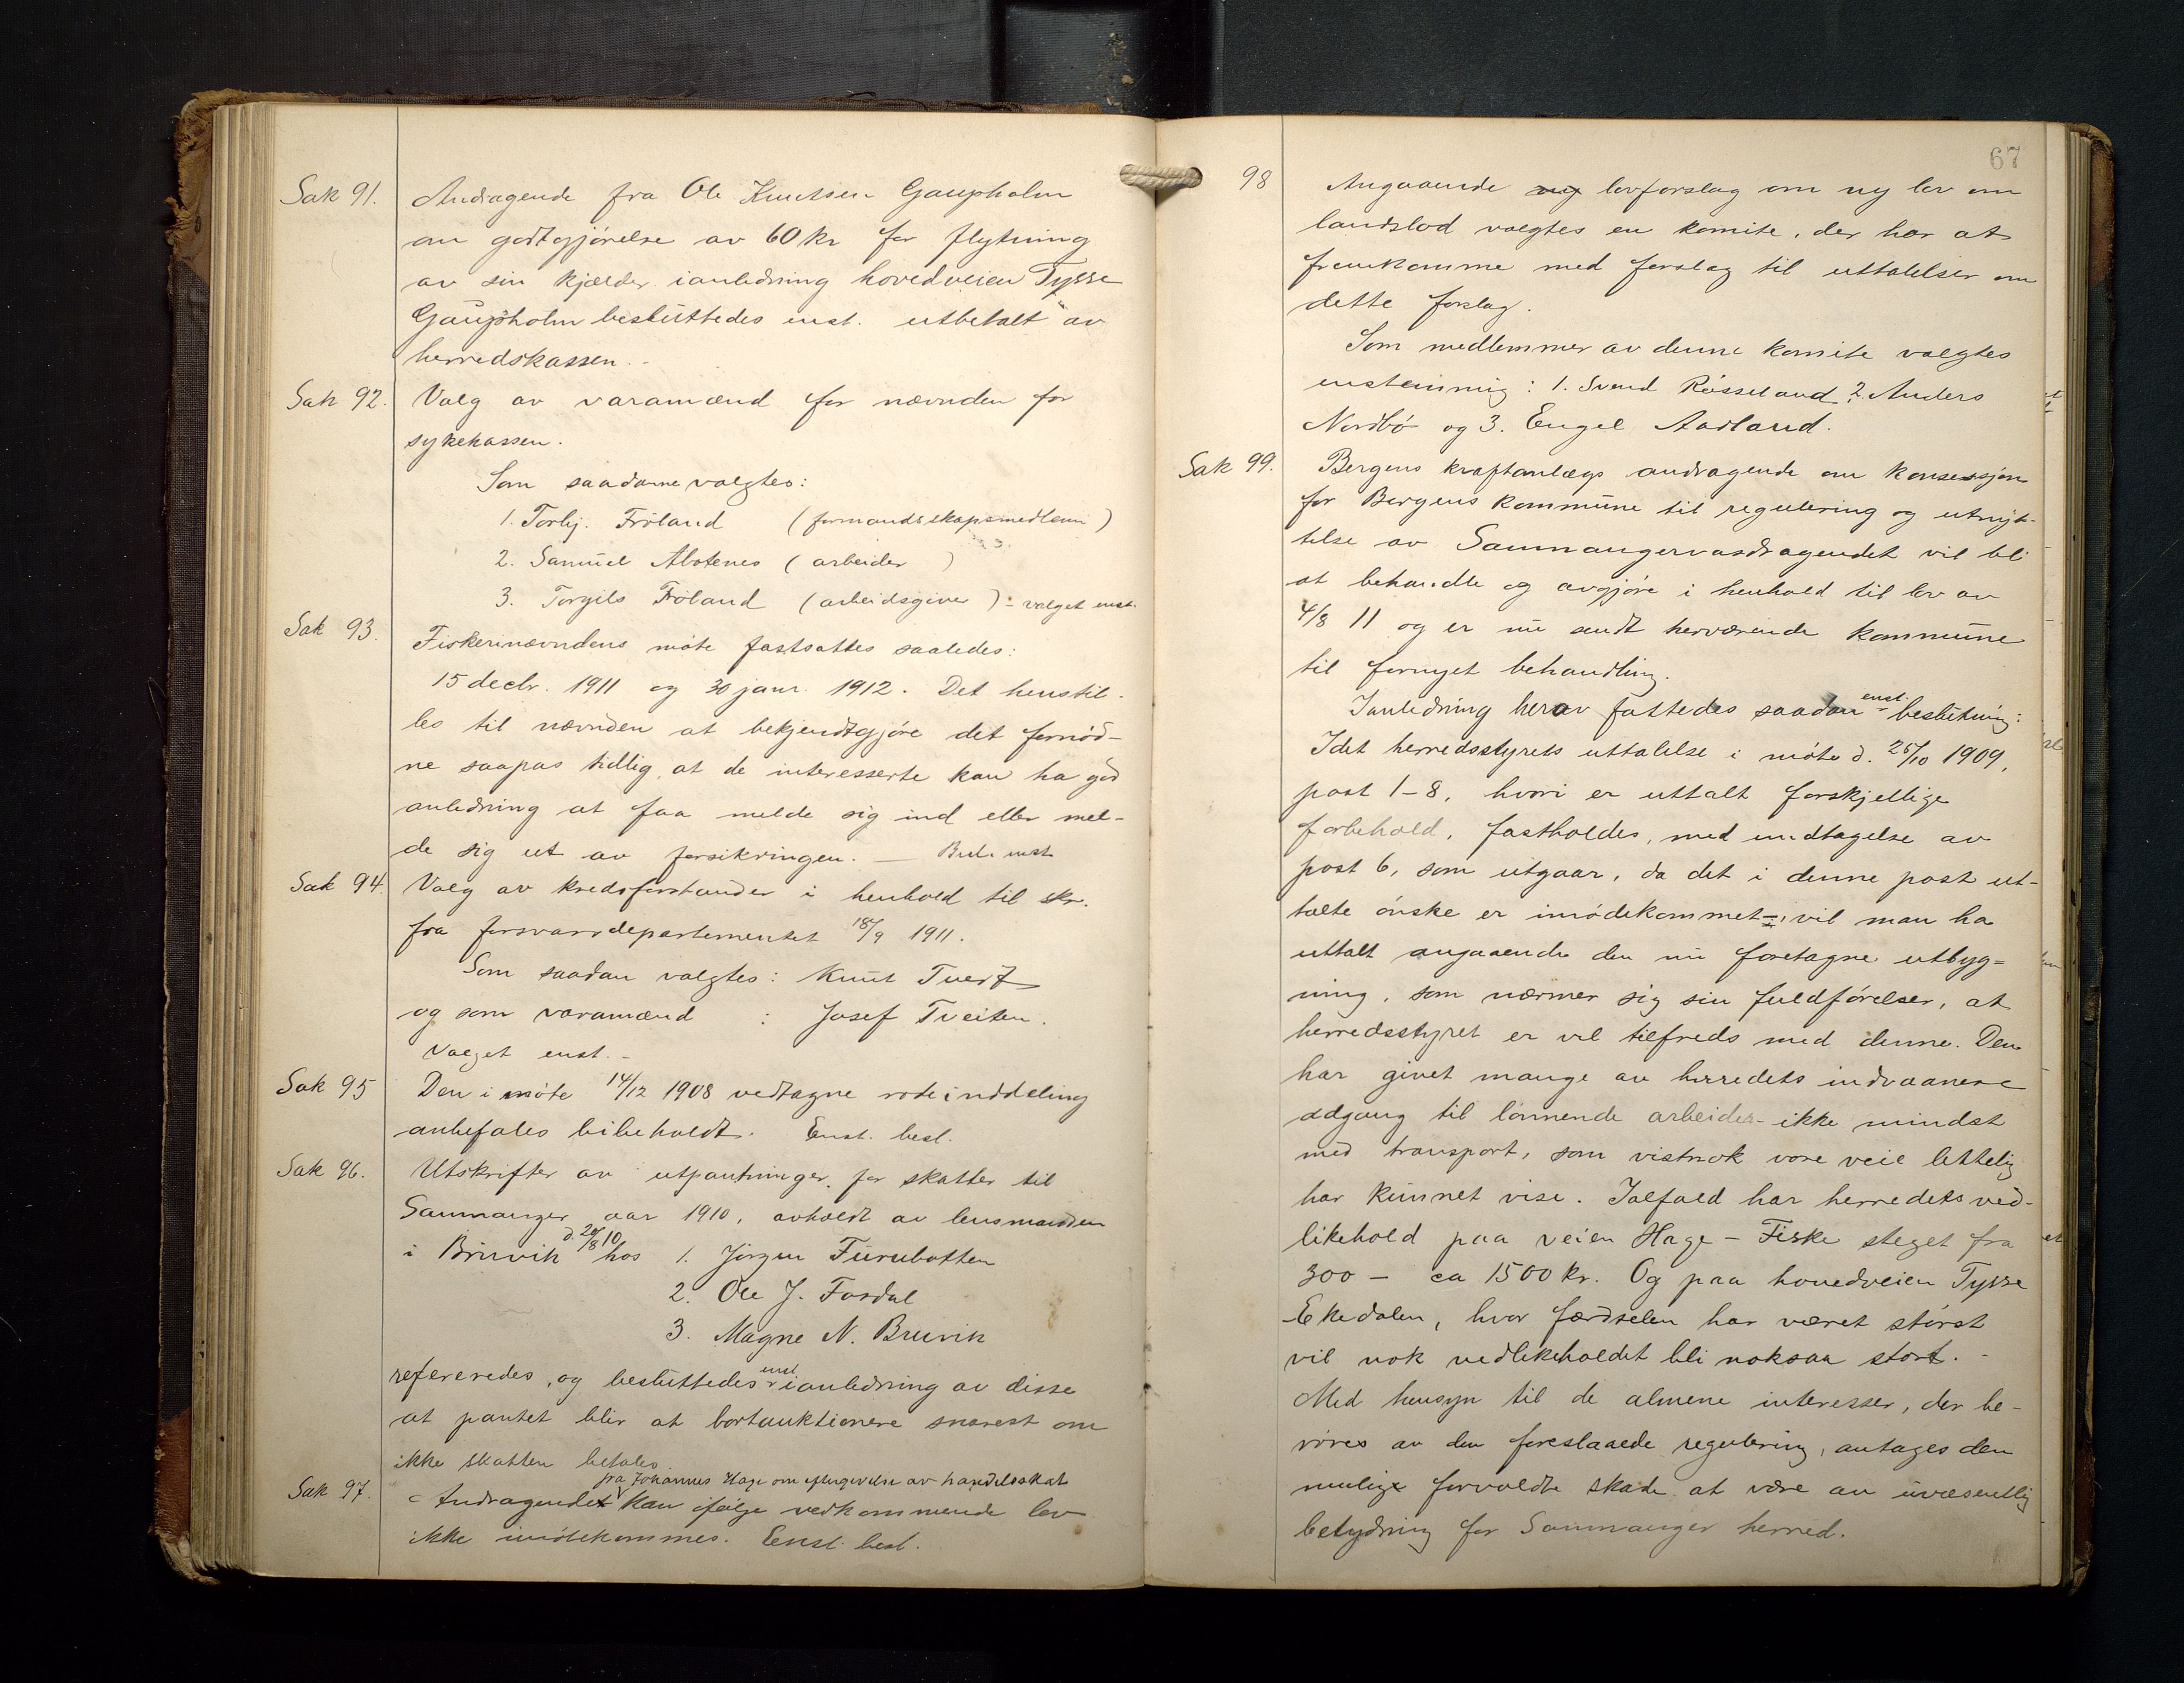 Sak 91. Andragende fra Ole Knutsen Gaupholm
om godtgjörelse av 60 kr for flytning
av sin kjælder ianledning hovedveien Tysse
Gaupholm besluttedes enst. utbetalt av
herredskassen.
Sak 92. Valg av varamænd for nævnden for
sykekassen.
Som saadanne valgtes:
1. Torbj. Fröland (formandsskapsmedlem)
2. Samuel Aldtenes (arbeider)
3. Torgils Fröland (arbeidsgiver) - valget enst.
Sak 93. Fiskerinævndens möte fastsattes saaledes:
15 decbr. 1911 og 30 janr. 1912. Det henstil-
les til nævnden at bekjendtgjöre det fornöd-
ne saapas tidlig at de interesserte kan ha god
anledning at faa melde sig ind eller mel-
de sig ut av forsikringen. — Besl. enst.
Sak 94. Valg av kredsforstander i henhold til skr.
fra forsvarsdepartementet 18/9 1911.
Som saadan valgtes: Knut Tveit
og som varamænd : Josef Tveiten.
Valget enst. -
Sak 95 Den i möte 14/12 1908 vedtagne rodeinddeling
anbefales bibeholdt. Enst. besl.
Sak 96. Utskrifter av utpantninger for skatter til
Samnanger aar 1910, avholdt av lensmanden
i Bruvik d. 20/8 10 hos 1. Jörgen Furubotten
2. Ole J. Fosdal
3. Magne N. Bruvik
refereredes, og besluttedes enst. ianledning av disse
at pantet blir at bortauktionere snarest om
ikke skatten betales.
fra Johannes Hage om eftergivelse av handelsskat
Sak 97. Andragendet kan ifölge vedkommende lov
ikke imötekommes. Enst. besl.
67
98 Angaaende lovforslag om ny lov om
landslod valgtes en komite, der har at
fremkomme med forslag til uttalelser om
dette forslag.
Som medlemmer av denne komite valgtes
enstemmig: 1. Svend Rösseland, 2. Anders
Nordbö og 3. Engel Aadland.
Sak 99. Bergens kraftanlægs andragende om konsessjon
for Bergens kommune til regulering og utnyt-
telse av Samnangervasdragendet vil bli
at behandle og avgjöre i henhold til lov av
4/8 11 og er nu sendt herværende kommune
til fornyet behandling.
Ianledning herav fattedes saadan enst. beslutning:
Idet herredsstyrets uttalelse i möte d. 25/10 1909,
post 1-8, hvori er uttalt forskjellige
forbehold, fastholdes, med undtagelse av
post 6, som utgaar, da det i denne post ut-
talte önske er imödekommet, vil man ha
uttalt angaaende den nu foretagne utbyg-
ning, som nærmer sig sin fuldförelser, at
herredsstyret er vel tilfreds med denne. Den
har givet mange av herredets indvaanere
adgang til lönnende arbeider - ikke mindst
med transport, som vistnok vore veie lettelig
har kunnet vise. Ialfald har herredets ved-
likehold paa veien Hage - Fiske steget fra
300 - ca 1500 kr. Og paa hovedveien Tysse
Ekedalen, hvor færdselen har været störst
vil nok vedlikeholdet bli noksaa stort. -
Med hensyn til de almene interesser, der be-
röres av den foreslaaede regulering, antages den
mulige forvoldte skade at være av uvæsentlig
betydning for Samnanger herred.